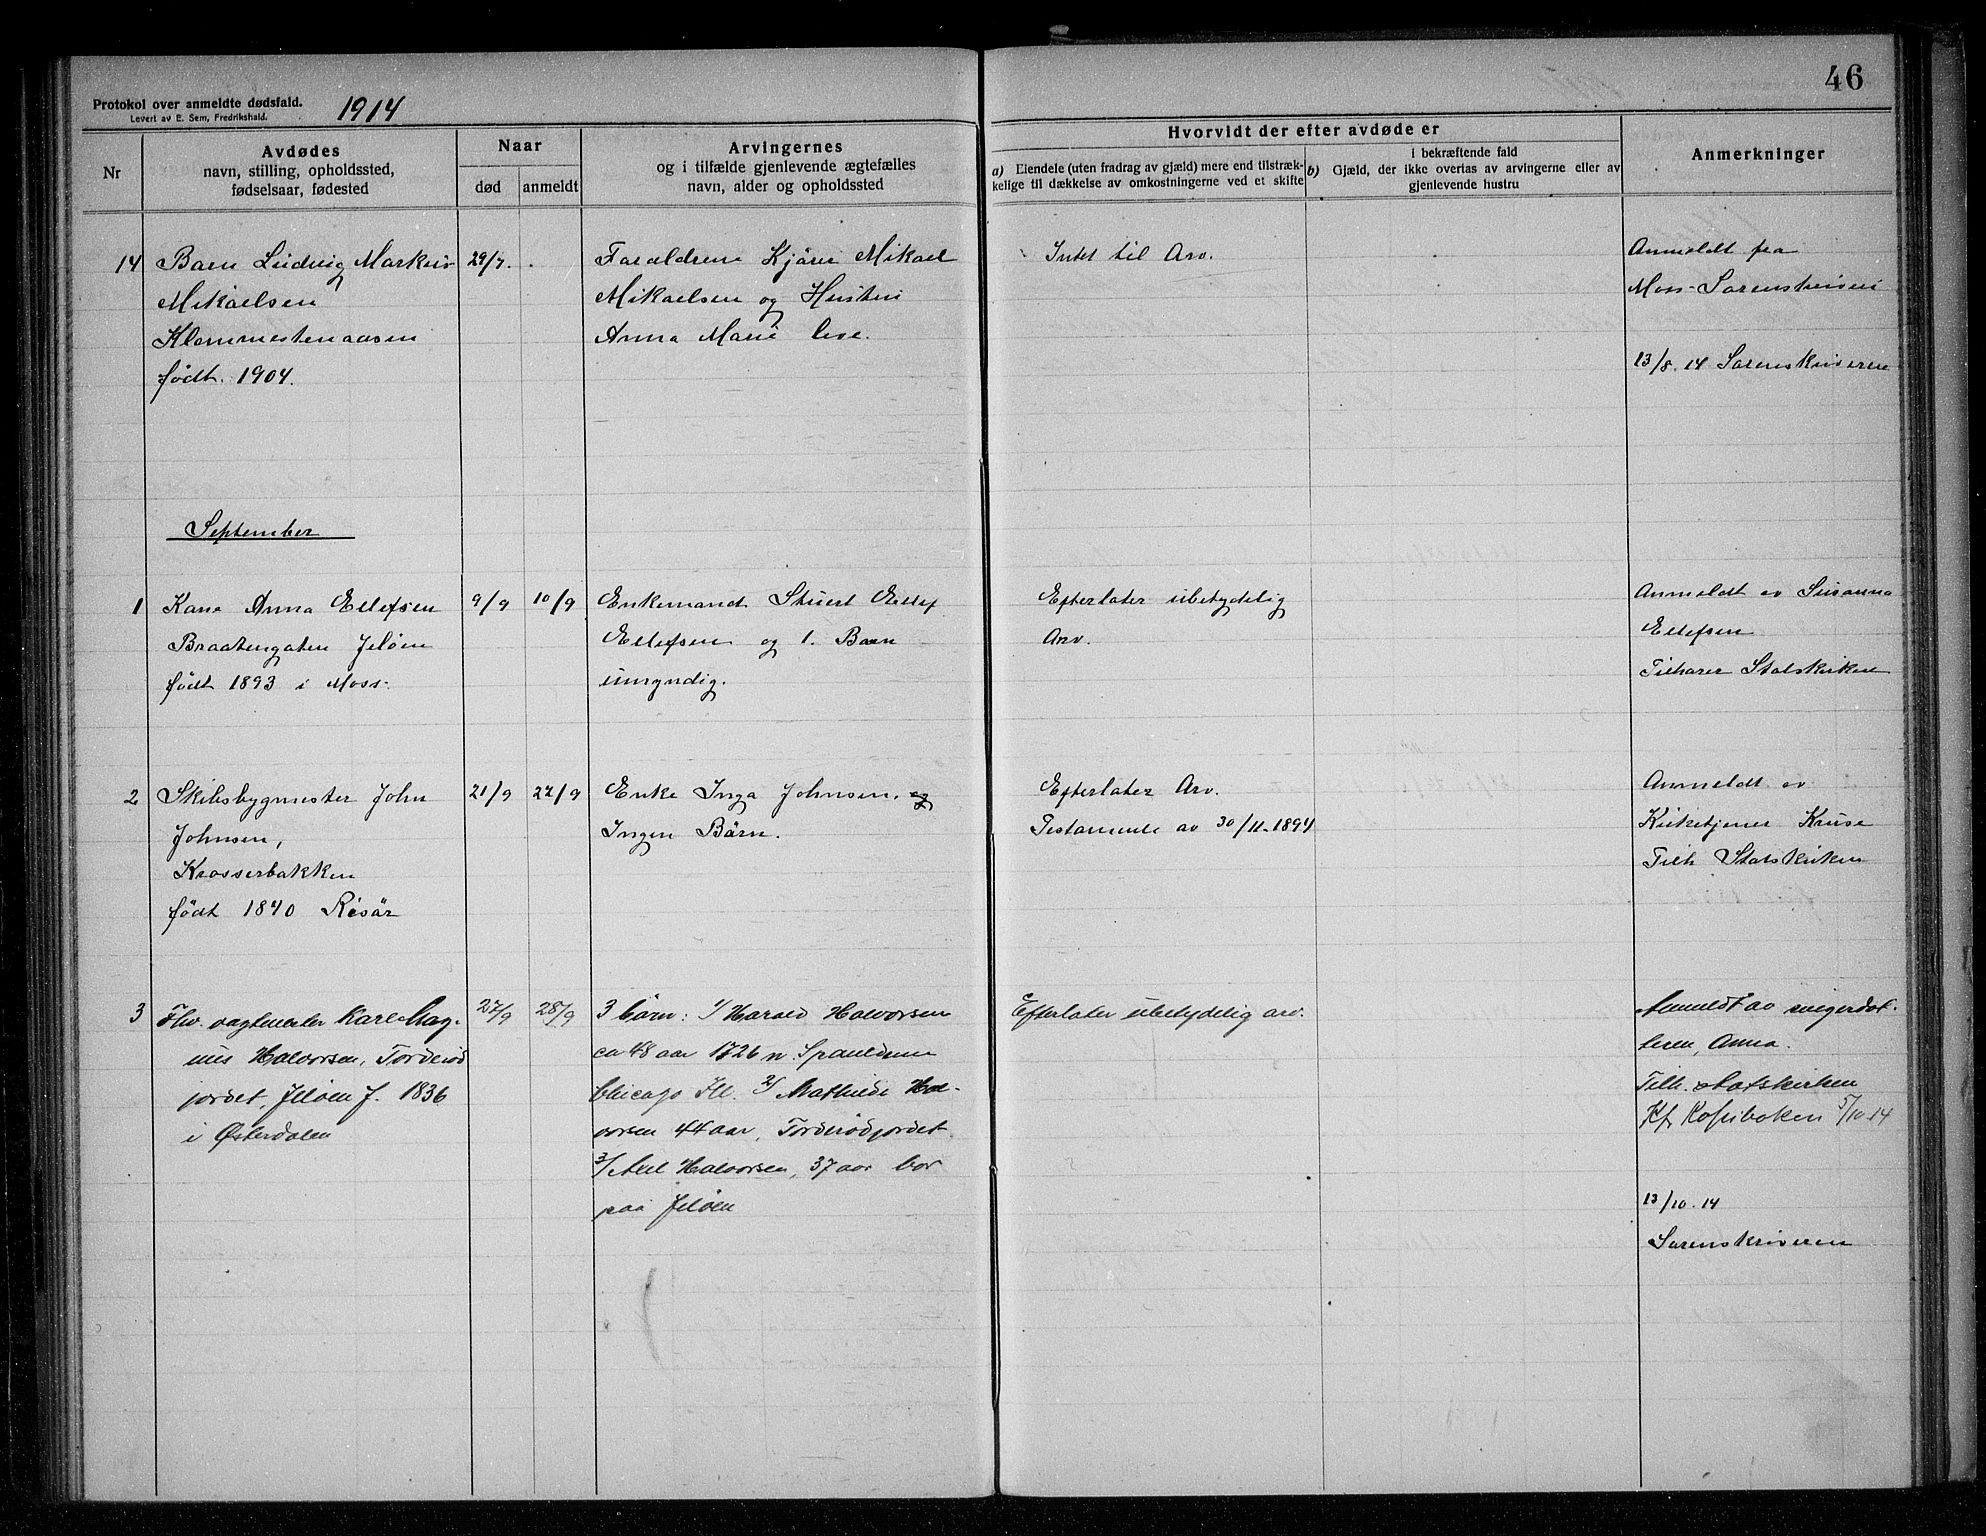 46
Protokol over anmeldte dødsfald.
Levert av E. Sem, Fredrikshald.
1914
Nr
Avdødes
navn, stilling, opholdssted,
fødselsaar, fødested
Naar
død
anmeldt
Arvingernes
og i tilfælde gjenlevende ægtefælles
navn, alder og opholdssted
Hvorvidt der efter avdøde er
a) Eiendele (uten fradrag av gjæld) mere end tilstræk-
kelige til dækkelse av omkostningerne ved et skifte
i bekræftende fald
b) Gjæld, der ikke overtas av arvingerne eller av
gjenlevende hustru
Anmerkninger
14
Barn Ludvig Markus
Mikaelsen
Klommestenaasen
født. 1904.
29/7.
Foræeldrene Kjører Mikael
Mikaelsen og Hustru
Anna Marie leve.
Intet til Arv.
Anmeldt fra
Moss-Sorenskriveri
13/8.14 Sorenskriveren
September
1
Kone Anna Ellefsen
Braatengaten Jeløen
født 1893 i Moss.
9/9
10/9
Enkemand Sivert Ellef
Ellefsen og 1. Barn
umyndig.
Efterlater ubetydelig
Arv.
Anmeldt av Susanna
Ellefsen
Tilhører Statskirken
2
Skibsbygmester John
Johnsen,
Krosserbakken
født 1840 Risør
21/9
22/9
Enke Inga Johnsen. og
Ingen Børn.
Efterlater Arv.
Testamente av 30/11-1894
Anmeldt av
Kirketjener Kruse
Tilh Statskirken
3
Fhv. vagtmester Karl Mag-
nus Halvorsen, Torderød
jordet, Jeløen f. 1836
i Østerdalen
27/9
28/9
3 børn: 1/ Harald Halvorsen
ca 48 aar 1726 n. Spaulding
Chicago Ill. 2/ Mathilde Hal-
vorsen 44 aar, Torderødjordet.
3/ Axel Halvorsen, 37 aar bor
paa Jeløen
Efterlater ubetydelig arv.
Anmeldt av svigerdat-
teren, Anna.
Tilh. Statskirken
Kf. Kopiboken 5/10.14
13/10.14
Sorenskriveren